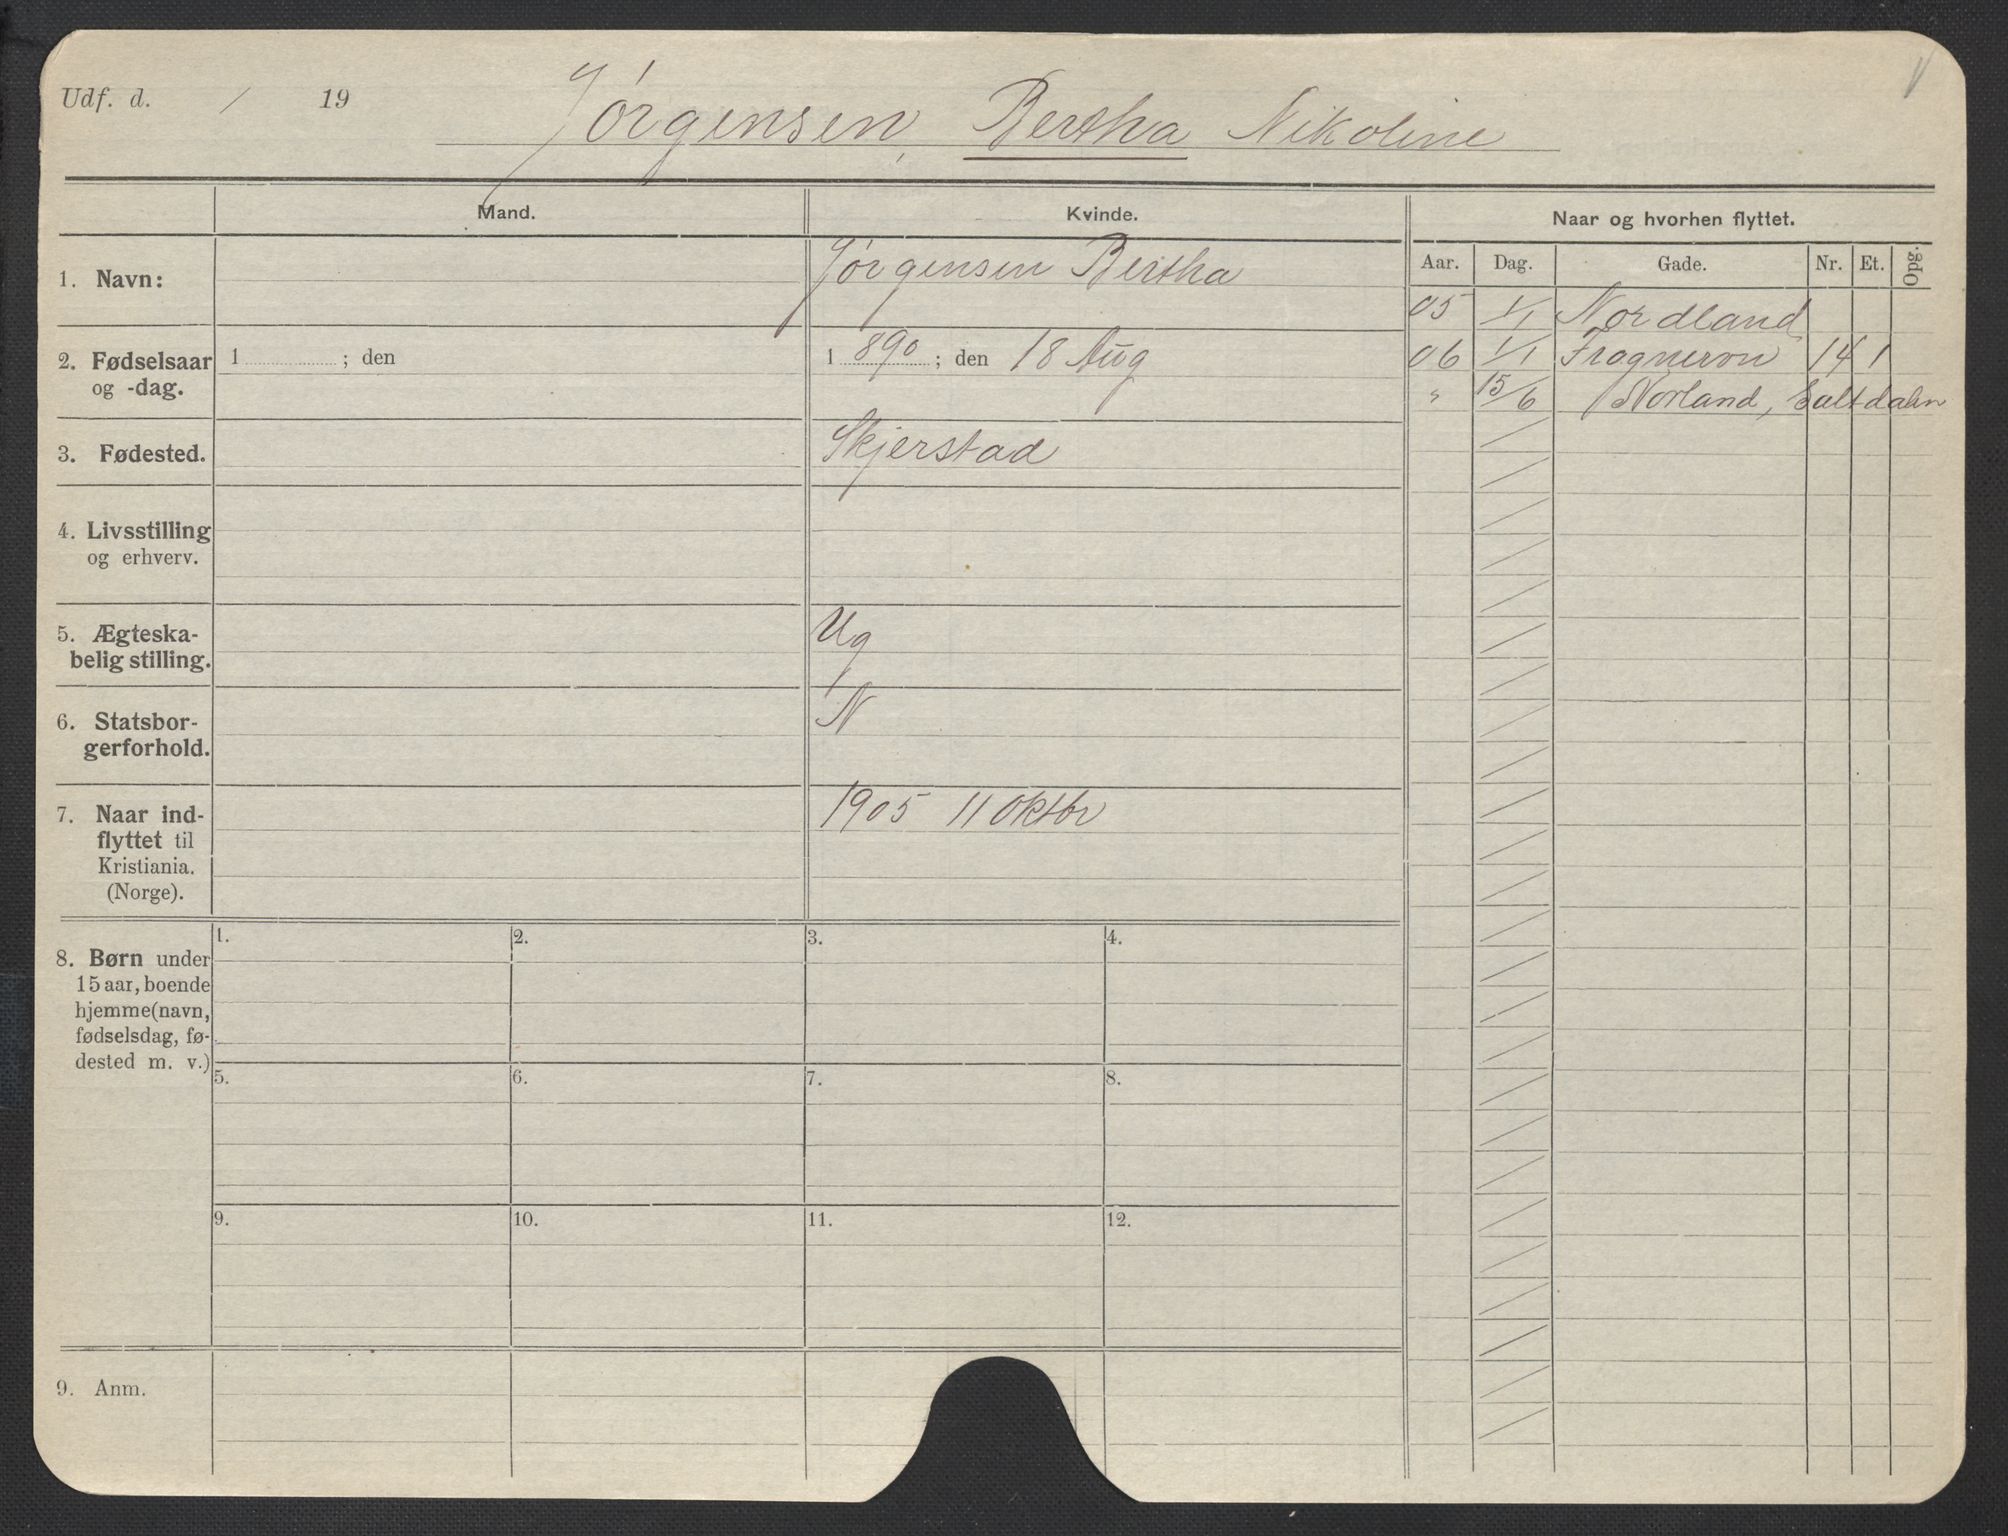 Udf. d. / 19
Jørgensen, Bertha Nikoline
Mand.
Kvinde.
Naar og hvorhen flyttet.
Aar. Dag. Gade. Nr. Et. Opg.
1. Navn:
Jørgensen Bertha
05 1/1 Nordland
06 1/1 Frognervn 14 1
" 15/6 Norland, Saltdalen
2. Fødselsaar
og -dag.
1 ; den
1 890 ; den 18 Aug
3. Fødested.
Skjerstad
4. Livsstilling
og erhverv.
5. Ægteska-
belig stilling.
Ug
6. Statsbor-
gerforhold.
N
7. Naar ind-
flyttet til
Kristiania.
(Norge).
1905 11 Oktbr
8. Børn under
15 aar, boende
hjemme (navn,
fødselsdag, fø-
dested m. v.)
1. 2. 3. 4.
5. 6. 7. 8.
9. 10. 11. 12.
9. Anm.